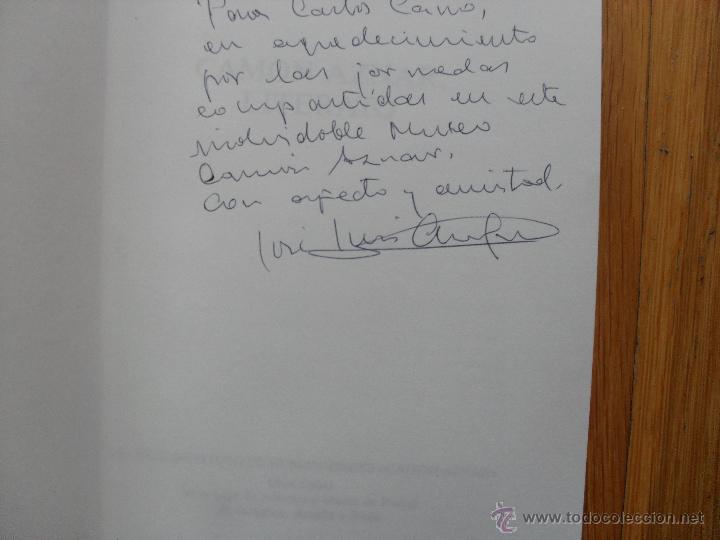 Para Carlos Cano,
en agradecimiento
por las jornadas
compartidas en este
inolvidable Museo
Camón Aznar.
Con afecto y amistad.
José Luis
www.todocoleccion.net